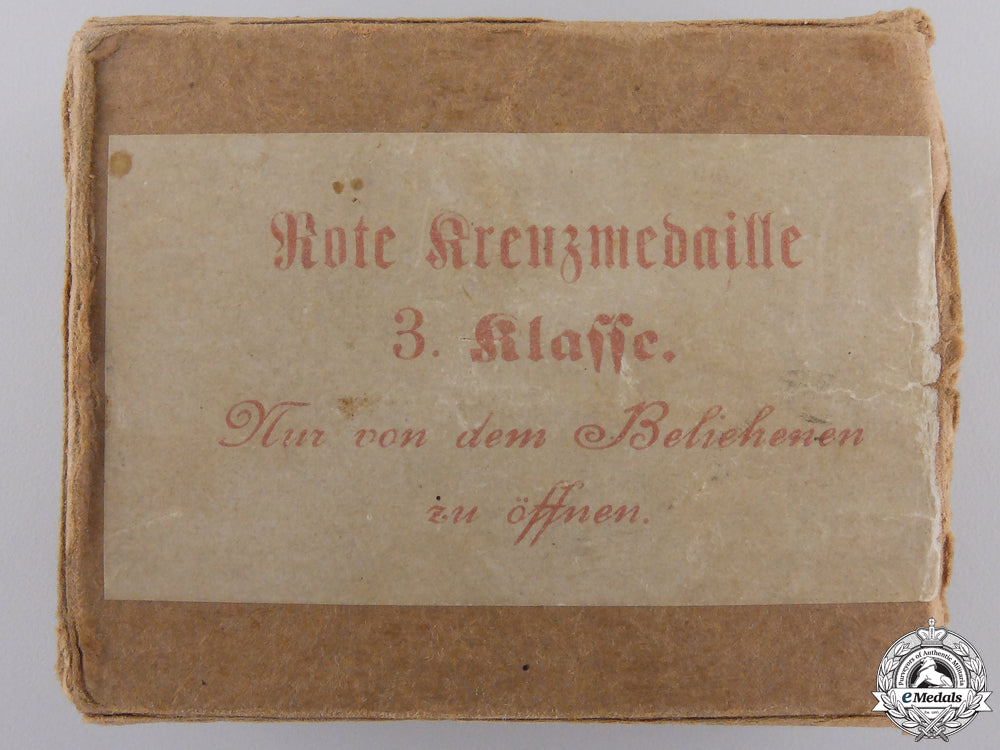 Rote Kreuzmedaille
3. Klasse.
Nur von dem Beliehenen
zu öffnen.
Purveyors of Authentic Militaria
eMedals